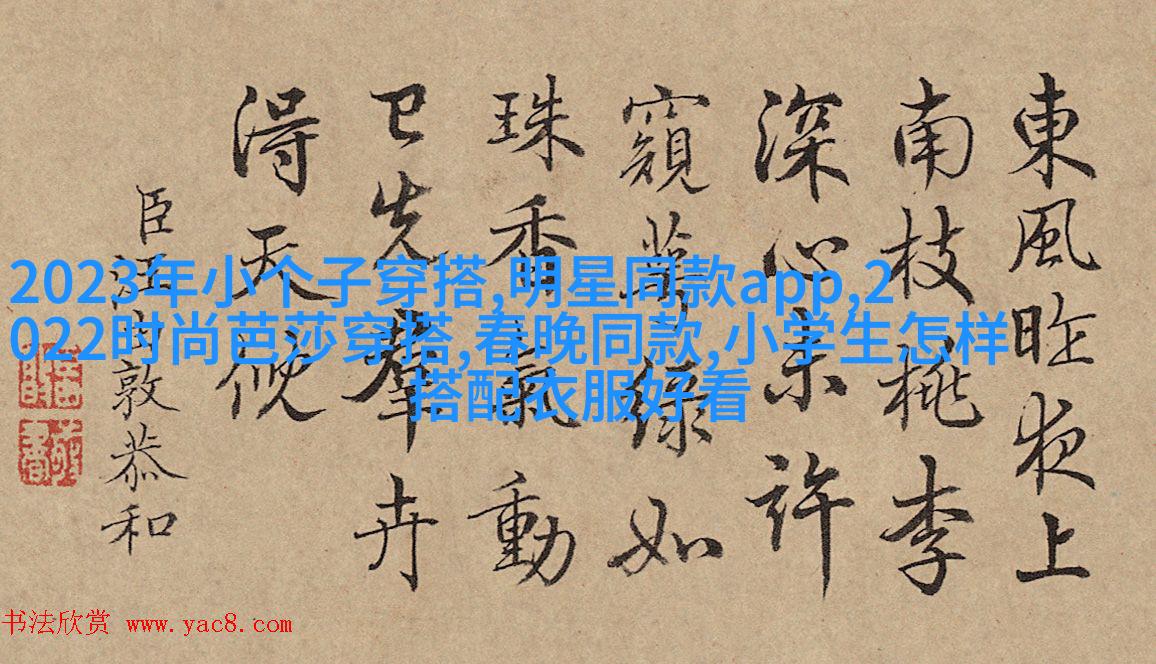 東風昨夜上
南枝桃李
深心未許
窺萼綠如
珠香氣動
已先羣卉
得天
臣汪由敦恭和
2023年小个子穿搭,明星同款app,2
022时尚芭莎穿搭,春晚同款,小学生怎样
搭配衣服好看
书法欣赏 www.yac8.com